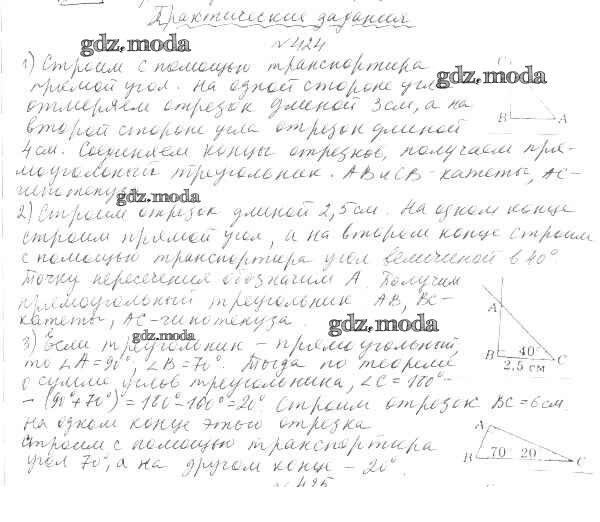 Практические задания
gdz.moda
№424
1) Строим с помощью транспортира
прямой угол. На одной стороне угла
gdz.moda
отмеряем отрезок длиной 3см, а на
второй стороне угла отрезок длиной
B A
4см. Соединяем концы отрезков, получаем пря-
моугольный треугольник. AB и CB - катеты, AC -
гипотенуза
gdz.moda
2) Строим отрезок длиной 2,5см. На одном конце
строим прямой угол, а на втором конце строим
с помощью транспортира угол величиной в 40°.
Точку пересечения обозначим A. Получим
прямоугольный треугольник AB, BC -
катеты, AC - гипотенуза.
gdz.moda
A
B 40° C
2,5 см
gdz.moda
3) Если треугольник - прямоугольный,
то ∠A = 90°, ∠B = 70°. Тогда по теореме
о сумме углов треугольника, ∠C = 180° -
- (90° + 70°) = 180° - 160° = 20°. Строим отрезок BC = 6см.
На одном конце этого отрезка
строим с помощью транспортира
угол 70°, а на другом конце - 20°.
A
B 70° 20 C
№425